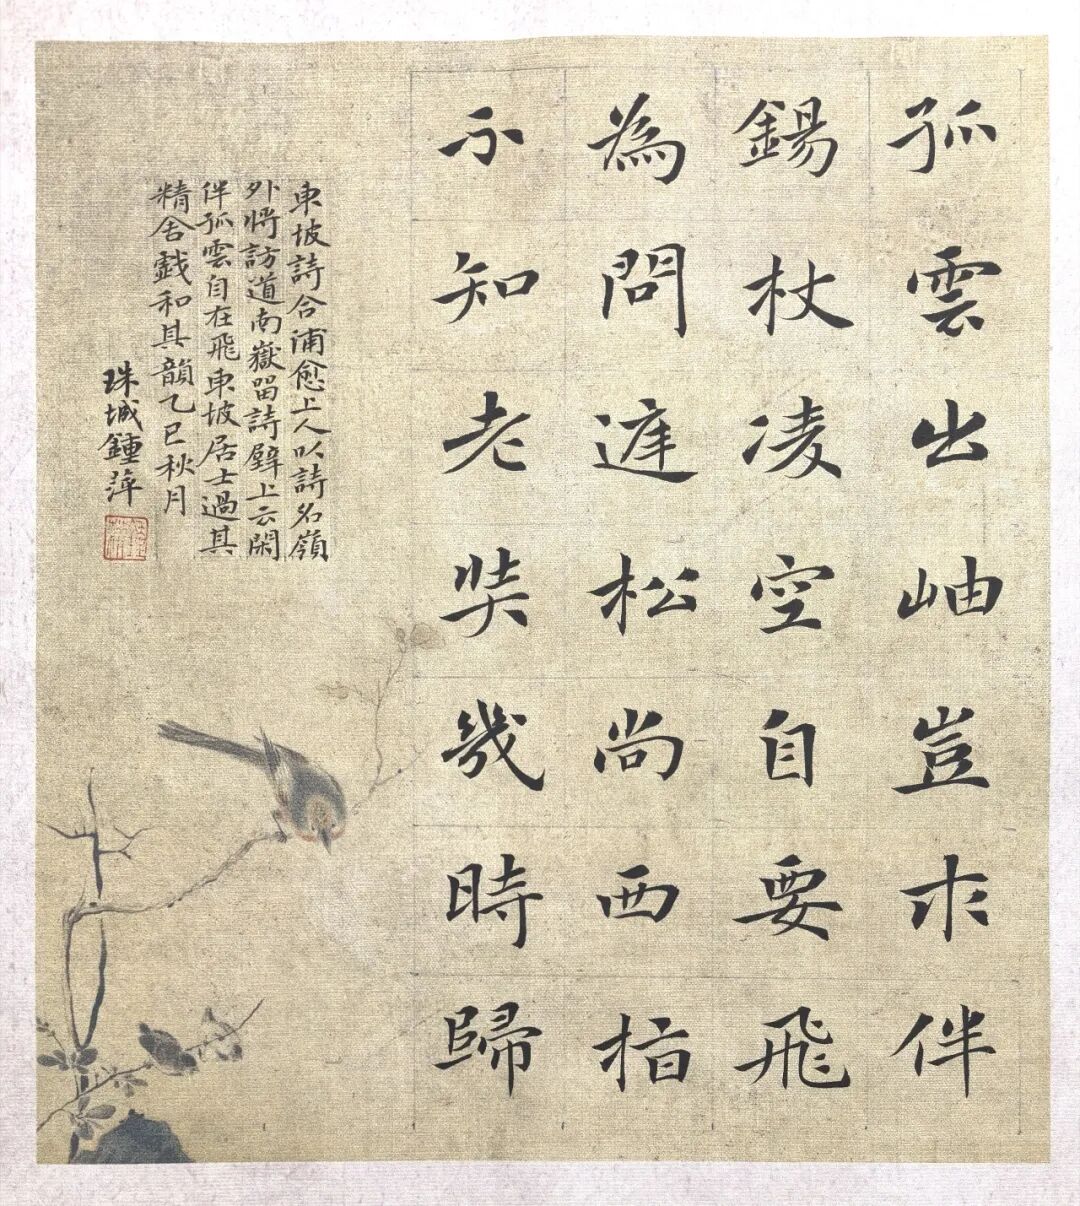 孤雲出岫豈求伴
錫杖凌空自要飛
為問庭松尚西指
不知老奘幾時歸
東坡詩合浦愈上人以詩名嶺
外將訪道南嶽留詩壁上云閑
伴孤雲自在飛東坡居士過其
精舍戲和其韻乙巳秋月
珠城鍾萍